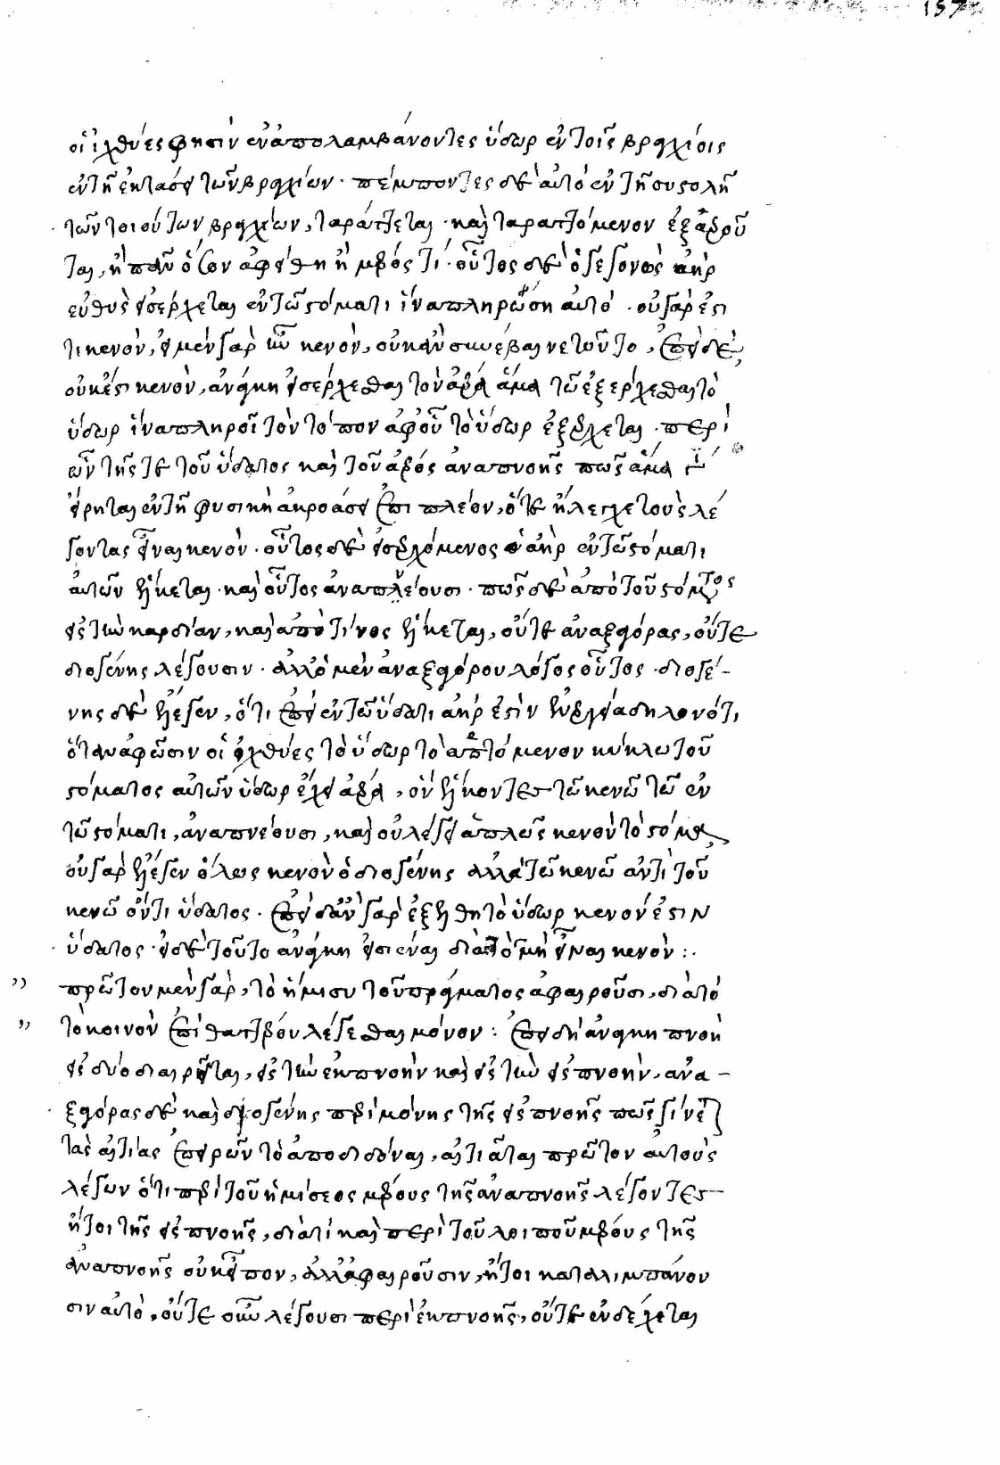 157
οἱ ἰχθύες φησὶν ἐναπολαμβάνοντες ὕδωρ ἐν τοῖς βραχίοις
ἐν τῇ ἐκτάσει τῶν βραχίων · πέμποντες δὲ αὐτὸ ἐν τῇ συστολῇ
τῶν τοιούτων βραχίων, ταράττεται · καὶ ταραττόμενον ἐξαεροῦ
ται, ἢ πᾶν ὅσον ἀφέθη ἢ μέρος τι · οὗτος δὲ ὁ γεγονὼς ἀὴρ
εὐθὺς εἰσέρχεται ἐν τῷ στόματι ἵνα πληρώσῃ αὐτό · οὐ γάρ ἐστι
τι κενὸν, εἰ μὲν γὰρ ἦν κενὸν, οὐκ ἂν συνέβαινε τοῦτο, ἐπεὶ δὲ
οὐκ ἔστι κενὸν, ἀνάγκη εἰσέρχεσθαι τὸν ἀέρα ἅμα τῷ ἐξέρχεσθαι τὸ
ὕδωρ ἵνα πληροῖ τὸν τόπον ἀφ' οὗ τὸ ὕδωρ ἐξέρχεται · περὶ
οὖν τῆς τε τοῦ ὕδατος καὶ τοῦ ἀέρος ἀναπνοῆς πῶς ἅμα
εἴρηται ἐν τῇ φυσικῇ ἀκροάσει ἐπὶ πλέον, ὅτε ἤλεγχε τοὺς λέ
γοντας εἶναι κενὸν · οὗτος δὲ εἰσερχόμενος ὁ ἀὴρ ἐν τῷ στόματι
αὐτῶν ἕλκεται · καὶ οὕτως ἀναπνέουσι · πῶς δὲ ἀπὸ τοῦ στόματος
εἰς τὴν καρδίαν, καὶ ἀπὸ τίνος ἕλκεται, οὔτε ἀναξαγόρας, οὔτε
διογένης λέγουσιν · ἀλλ' ὁ μὲν ἀναξαγόρου λόγος οὗτος · διογέ-
νης δὲ ἔλεγεν, ὅτι ἐπεὶ ἐν τῷ ὕδατι ἀήρ ἐστιν ἐνεργείᾳ δηλονότι
ὅταν ἀφῶσιν οἱ ἰχθύες τὸ ὕδωρ τὸ ἁπτόμενον κύκλῳ τοῦ
στόματος αὐτῶν ὕδωρ ἔχει ἀέρα, ὃν ἕλκοντες τῷ κενῷ τῷ ἐν
τῷ στόματι, ἀναπνέουσι, καὶ οὐ λέγει ἁπλῶς κενὸν τὸ στόμα,
οὐ γὰρ ἔλεγεν ὅλως κενὸν ὁ διογένης ἀλλὰ τῷ κενῷ ἀντὶ τοῦ
κενῷ ὄντι ὕδατος · ἐπειδὰν γὰρ ἐξέλθῃ τὸ ὕδωρ κενόν ἐστιν
ὕδατος · εἰ δὲ τοῦτο ἀνάγκη εἰσιέναι διὰ τὸ μὴ εἶναι κενὸν :·
πρῶτον μὲν γὰρ, τὸ ἥμισυ τοῦ πράγματος ἀφαιροῦσι, διὰ τὸ
τὸ κοινὸν ἐπὶ θατέρου λέγεσθαι μόνον : ἐπειδὴ ἀνάγκη πνοὴ
εἰς δύο διαιρεῖται, εἰς τὴν ἐκπνοὴν καὶ εἰς τὴν εἰσπνοὴν, ἀνα-
ξαγόρας δὲ καὶ διογένης περὶ μόνης τῆς εἰσπνοῆς πῶς γίνεται
τὰς αἰτίας ἐπειρῶντο ἀποδιδόναι, αἰτιᾶται πρῶτον αὐτοὺς
λέγων ὅτι περὶ τοῦ ἡμίσεος μέρους τῆς ἀναπνοῆς λέγοντες
ἤτοι τῆς εἰσπνοῆς, διατί καὶ περὶ τοῦ λοιποῦ μέρους τῆς
ἀναπνοῆς οὐκ εἶπον, ἀλλ' ἀφαιροῦσιν, ἤτοι καταλιμπάνου
σιν αὐτὸ, οὔτε οὖν λέγουσι περὶ ἐκπνοῆς, οὔτε ἐνδέχεται